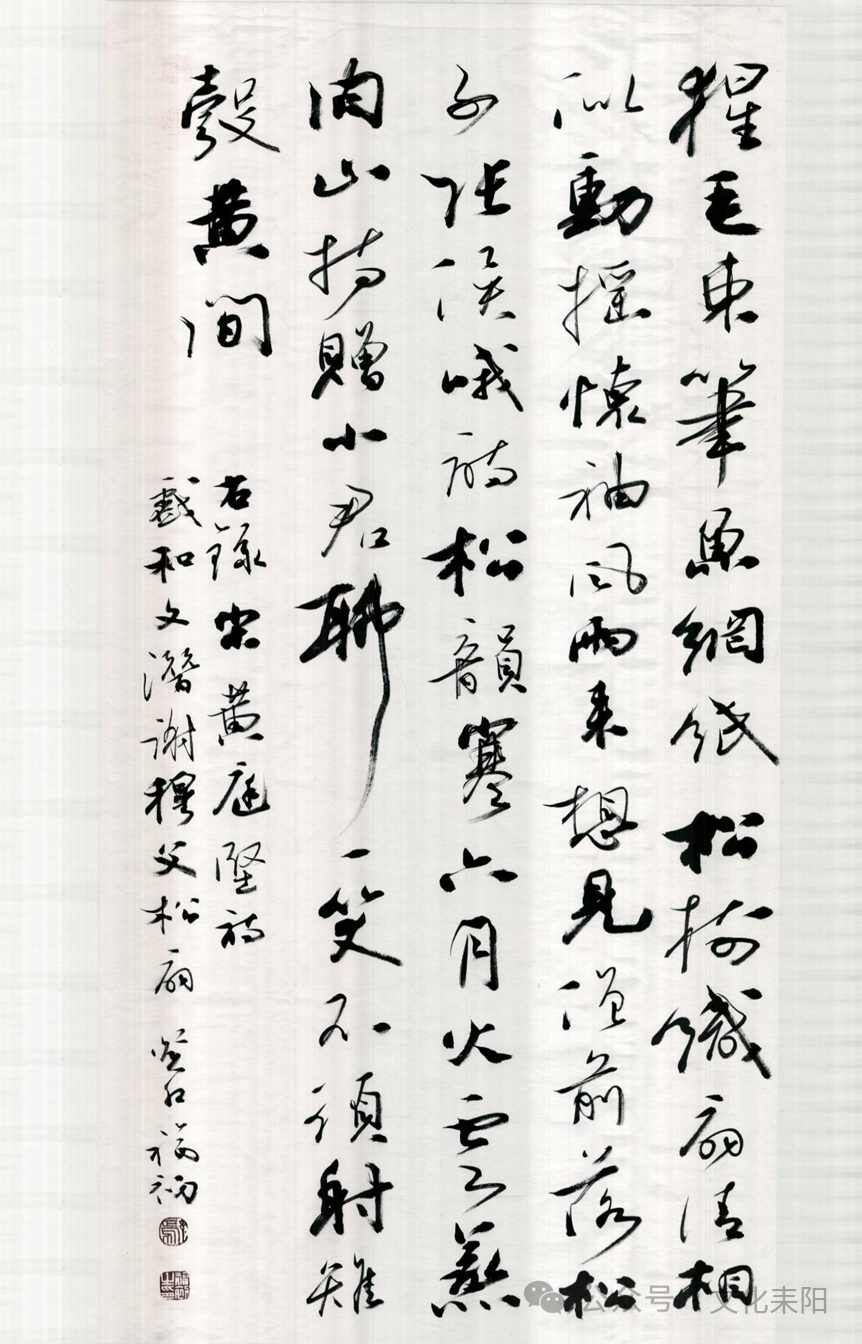 猩毛束筆魚網紙松柎織扇清相
似動搖懷袖風雨来想見僧前落松
子張侯哦詩松韻寒六月火雲蒸
肉山持贈小君聊一笑不須射雉
彀黄間
右録宋黄庭堅詩
戲和文潛謝穆父松扇
公众号 · 文化耒阳